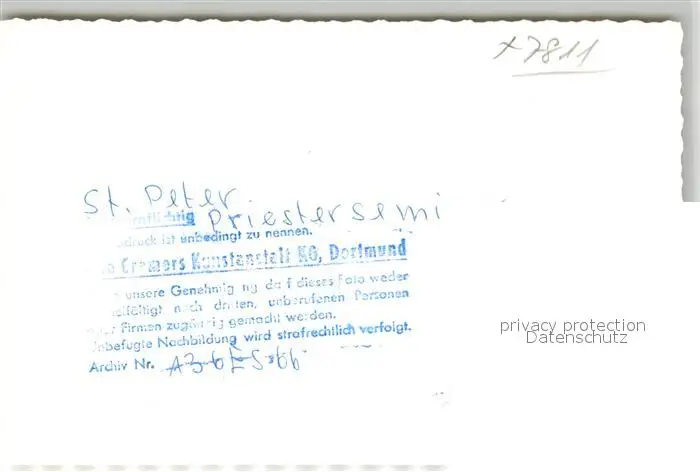 x7811
St. Peter
Priestersemi
ist unbedingt zu nennen.
Cramers Kunstanstalt KG, Dortmund
unsere Genehmig ng da f dieses Foto weder
nach dritten, unberufenen Personen
Firmen zugängig gemacht werden.
nbefugte Nachbildung wird strafrechtlich verfolgt.
Archiv Nr.
privacy protection
Datenschutz